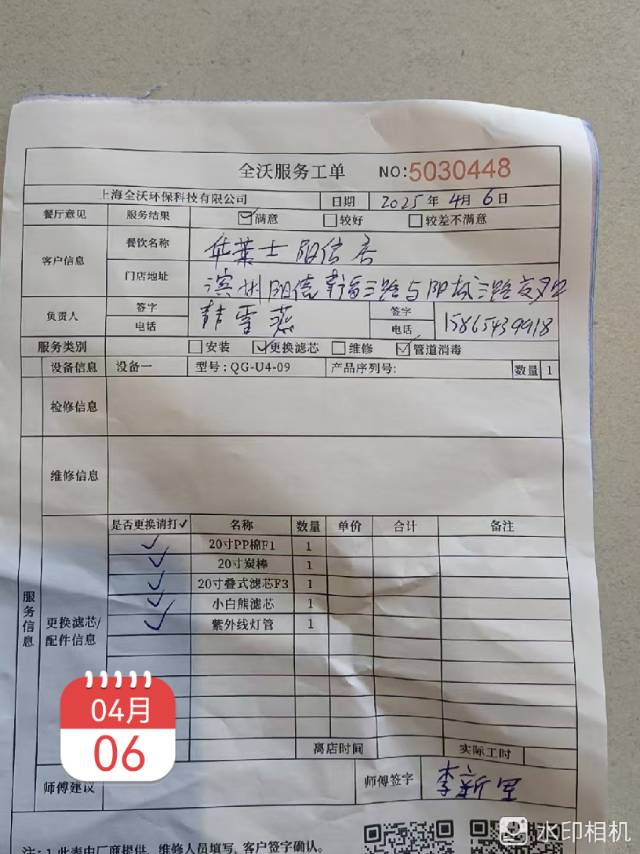 全沃服务工单 NO:5030448
上海全沃环保科技有限公司 日期 2025年4月6日
餐厅意见 服务结果 满意 较好 较差不满意
客户信息 餐饮名称 华莱士阳信店
门店地址 滨州阳信幸福三路与阳城三路交叉口
负责人 签字 签字
电话 电话 15865439918
服务类别 安装 更换滤芯 维修 管道消毒
设备信息 设备一 型号:QG-U4-09 产品序列号: 数量 1
检修信息
维修信息
服务信息
更换滤芯/配件信息
是否更换请打✓ 名称 数量 单价 合计 备注
✓ 20寸PP棉F1 1
✓ 20寸炭棒 1
✓ 20寸叠式滤芯F3 1
✓ 小白熊滤芯 1
✓ 紫外线灯管 1
离店时间 实际工时
师傅建议 师傅签字
注:1.此表由厂商提供、维修人员填写、客户签字确认。
04月
06
水印相机